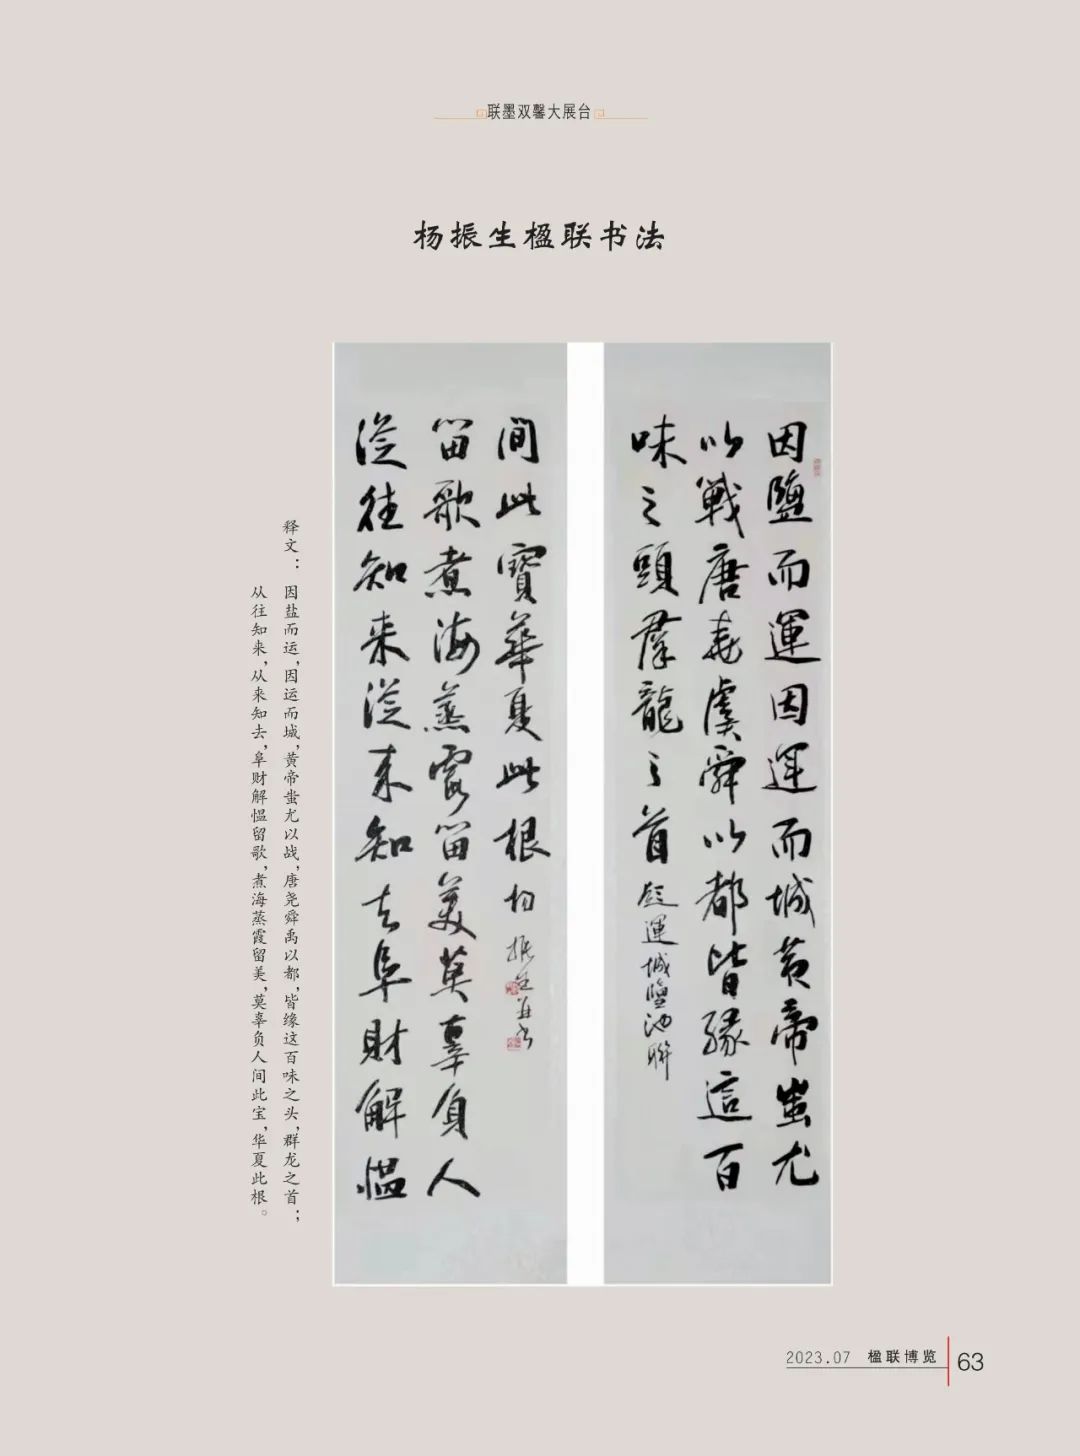 联墨双馨大展台
杨振生楹联书法
因鹽而運因運而城黄帝蚩尤
以戰唐堯虞舜以都皆緣這百
味之頭羣龍之首
題運城鹽池聯
從往知来從来知去阜財解愠
留歌煮海蒸霞留美莫辜負人
间此寳華夏此根
振生並书
释文：因盐而运，因运而城，黄帝蚩尤以战，唐尧舜禹以都，皆缘这百味之头，群龙之首；
从往知来，从来知去，阜财解愠留歌，煮海蒸霞留美，莫辜负人间此宝，华夏此根。
2023.07 楹联博览 63